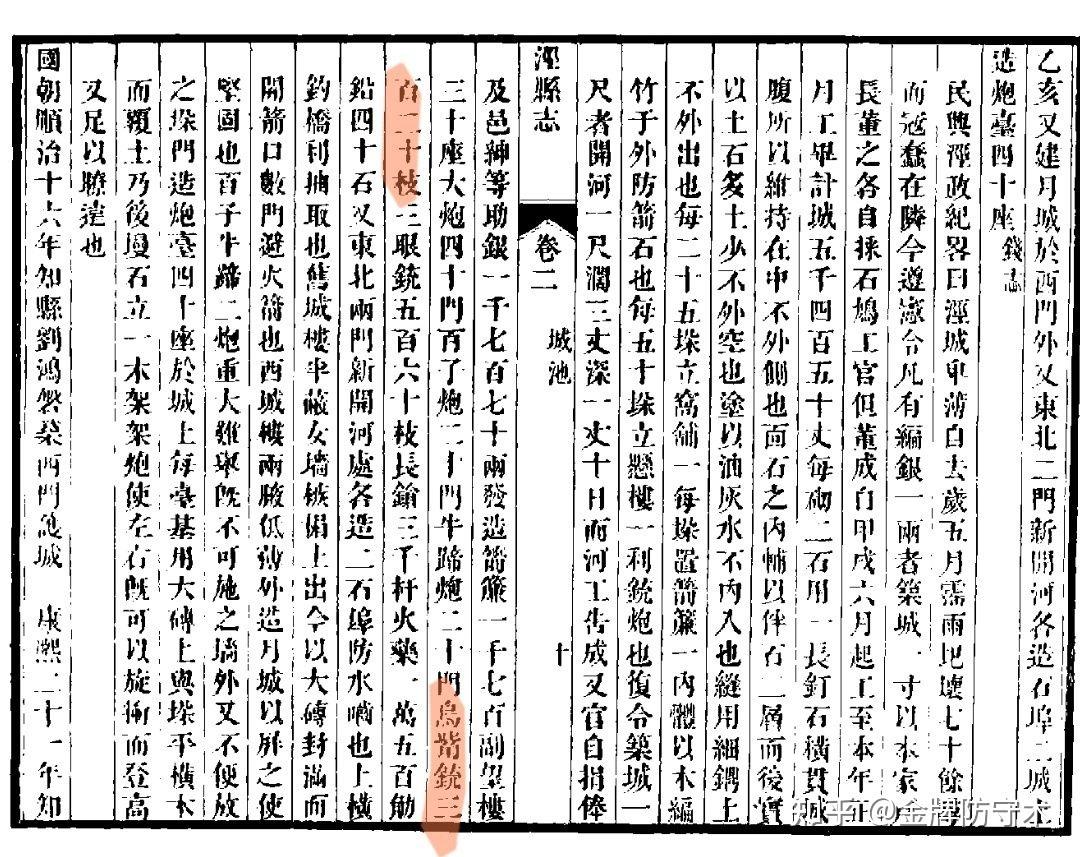 乙亥又建月城於西門外又東北二門新開河各造石埠二城上
造炮臺四十座 錢志
民興涇政紀畧曰涇城卑薄自去歲五月霪雨圯壞七十餘
而冠蠢在隣今遵憲令凡有編銀一兩者築城一寸以本家
長董之各自採石鳩工官但董成自甲戌六月起工至本年正
月工畢計城五千四百五十丈每砌二石用一長釘石橫貫城
腹所以維持在中不外側也面石之內輔以伴石二層而後實
以土石多土少不外空也塗以油灰水不內入也縫用細鐁土
不外出也每二十五垜立窩舖一每垜置箭簾一內體以木編
竹于外防箭石也每五十垜立懸樓一利銃炮也復令築城一
尺者開河一尺濶三丈深一丈十日而河工告成又官自捐俸
涇縣志 卷二 城池 十
及邑紳等助銀一千七百七十兩發造箭簾一千七百副望樓
三十座大炮四十門百子炮二十門牛蹄炮二十門鳥嘴銃三
百二十枝三眼銃五百六十枝長鎗三千杆火藥一萬五百觔
鉛四十石又東北兩門新開河處各造二石埠防水嚙也上橫
釣橋利抽取也舊城樓卑蔽女墻樵侷上出今以大磚封滿而
開箭口數門避火箭也西城樓兩腋低薄外造月城以屏之使
堅固也百子牛蹄二炮重大難舉旣不可施之墻外又不便放
之垜門造炮臺四十座於城上每臺基用大磚上與垜平橫木
而覆土乃後墁石立一木架架炮使左右旣可以旋衝而登高
又足以瞭遠也
國朝順治十六年知縣劉鴻磐葺西門月城 康熙二十一年知
知乎 @金牌防守木